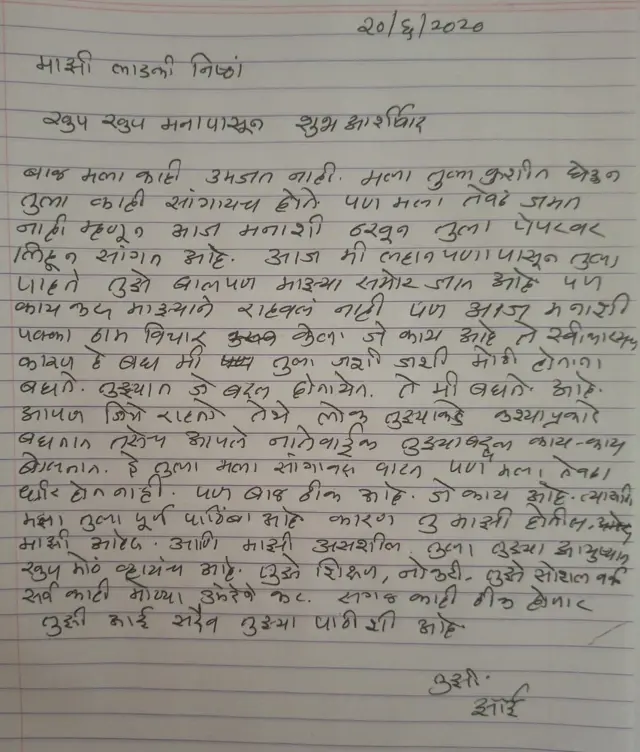 २०/६/२०२०
माझी लाडली निष्ठां
खुप खुप मनापासून शुभ आर्शीवाद
बाळ मला काही उमजत नाही. मला तुला कुशीत घेऊन
तुला काही सांगायच होते पण मला तेवढं जमत
नाही म्हणून आज मनाशी ठरवून तुला पेपरवर
लिहून सांगत आहे. आज मी लहानपणापासून तुला
पाहते तुझे बालपण माझ्या समोर जात आहे पण
काय करु माझ्याने राहवलं नाही पण आज मनाशी
पक्का ठाम विचार केला जे काय आहे ते
कारण हे बघ मी तुला जशी जशी मोठी होताना
बघते. तुझ्यात जे बदल होतायेत. ते मी बघते आहे.
आपण जिथे राहतो तेथे लोक तुझ्याकडे कश्याप्रकारे
बघतात तसेच आपले नातेवाईक तुझ्याबद्दल काय-काय
बोलतात. हे तुला मला सांगावस वाटत पण मला तेवढा
धीर होत नाही. पण बाळ ठीक आहे. जे काय आहे.
मझा तुला पूर्ण पाठिंबा आहे कारण तु माझी होतीस.
माझी आहेस. आणि माझी असशील. तुला तुझ्या आयुष्यात
खुप मोठं व्हायंच आहे. तुझे शिक्षण, नोकरी. तुझे सोशल वर्क
सर्व काही मोठ्या उमेदीने कर. सगळ काही ठीक होणार
तुझी आई सदैव तुझ्या पाठीशी आहे
तुझी.
आई